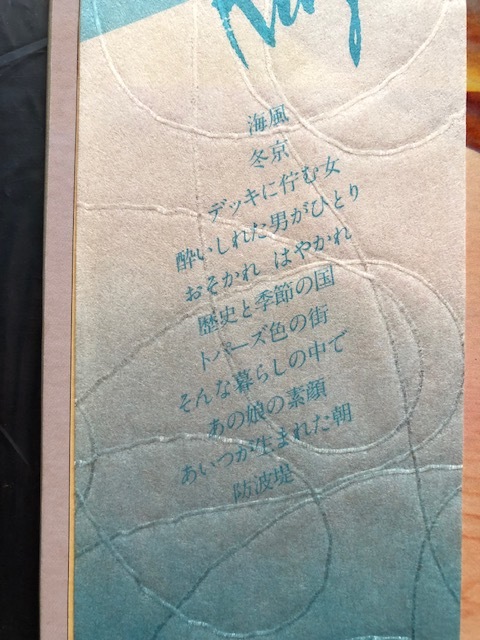 海風
冬京
デッキに佇む女
酔いしれた男がひとり
おそかれ はやかれ
歴史と季節の国
トパーズ色の街
そんな暮らしの中で
あの娘の素顔
あいつが生まれた朝
防波堤